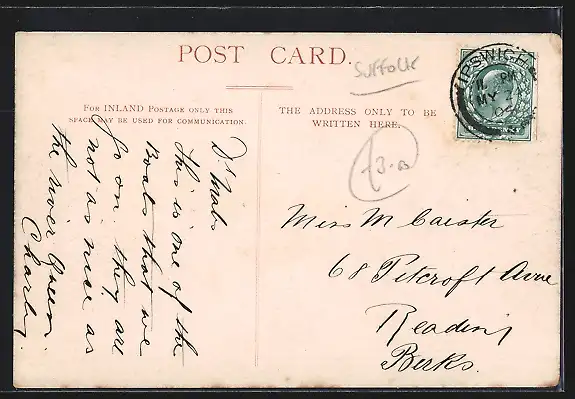 POST CARD.
Suffolk
FOR INLAND POSTAGE ONLY THIS
SPACE MAY BE USED FOR COMMUNICATION.
THE ADDRESS ONLY TO BE
WRITTEN HERE.
IPSWICH
MY
Dr Mabs
this is one of the
Boats that we
go on they are
not as nice as
the river Queen.
Charly.
Miss M Caister
68 Pitcroft Avnue
Reading
Berks.